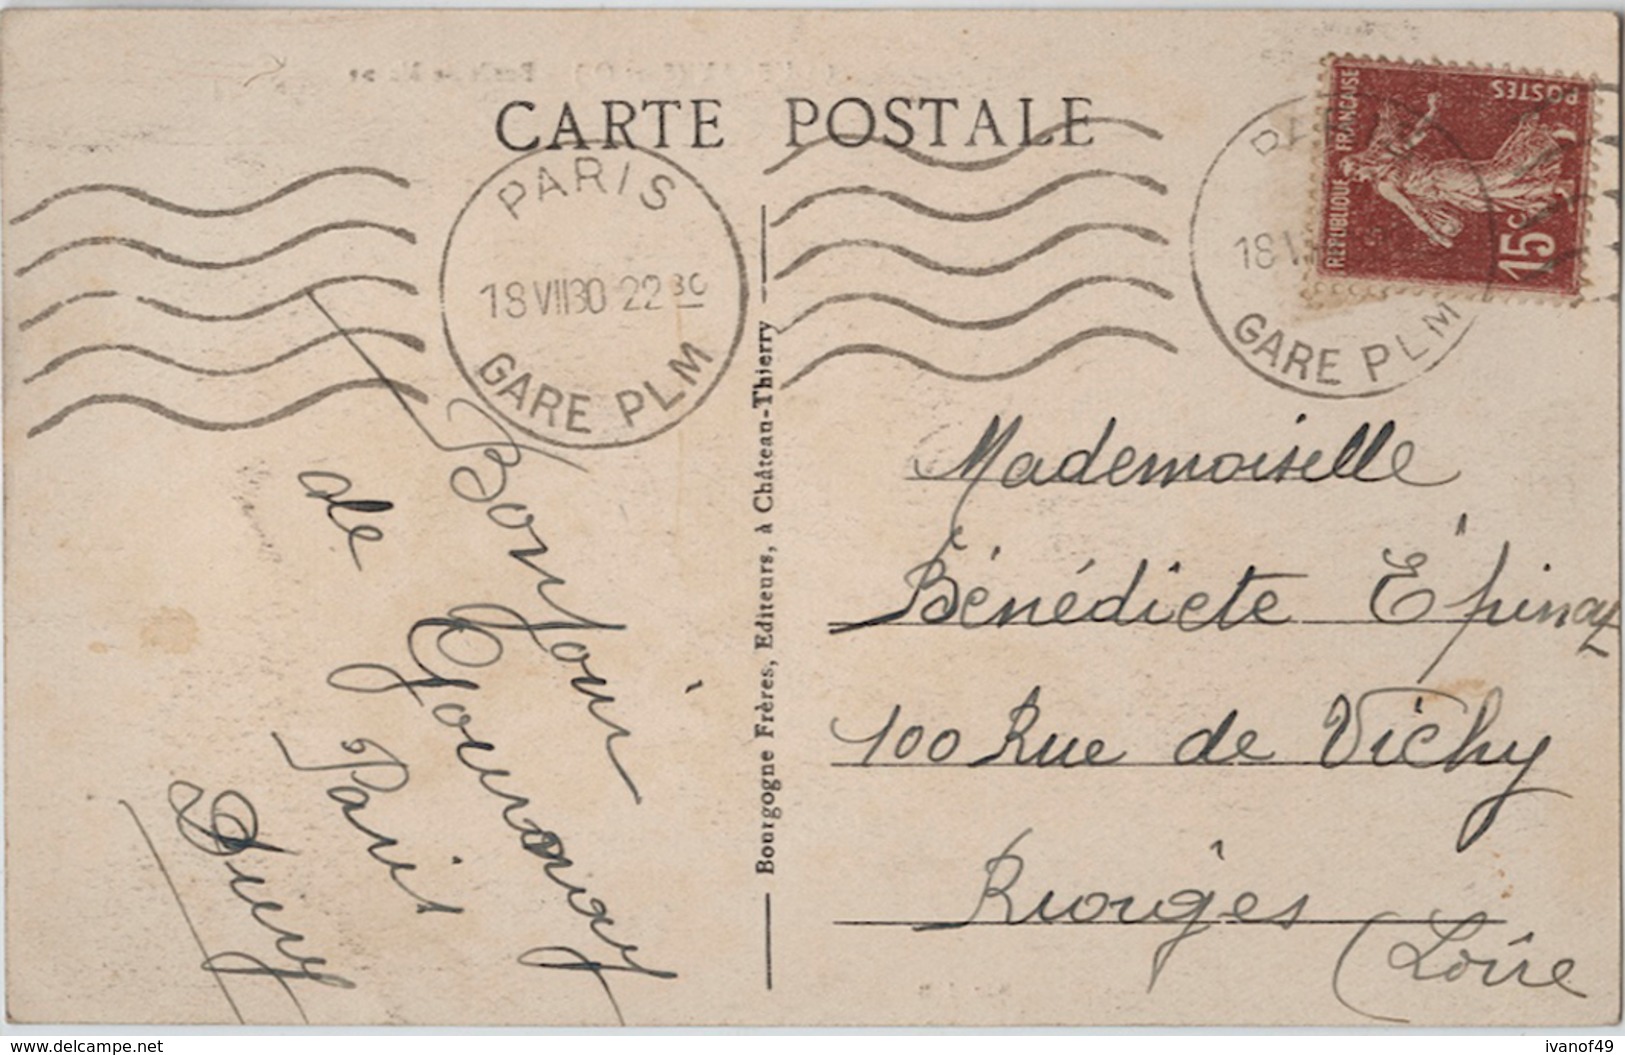 CARTE POSTALE
PARIS
18 VII 30 22 30
GARE PLM
PARIS
18 VII
GARE PLM
REPUBLIQUE FRANÇAISE
POSTES
15c
Bourgogne Frères, Editeurs, à Château-Thierry
Bonjour
de Gournay
Paris
Mademoiselle
Bénédicte Épinay
100 Rue de Vichy
Riorges
(Loire
www.delcampe.net
ivanof49